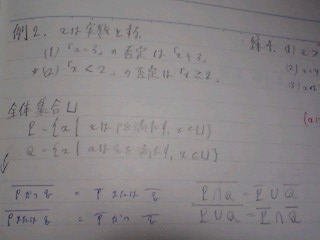 例2. xは実数とする。
(1)「x=3」の否定は「x≠3」
(2)「x<2」の否定は「x≧2」
全体集合U
P={x | xはpを満たす, x∈U}
Q={x | xはqを満たす, x∈U}
pかつq = p または q
pまたはq = p かつ q
P∩Q = P∪Q
P∪Q = P∩Q